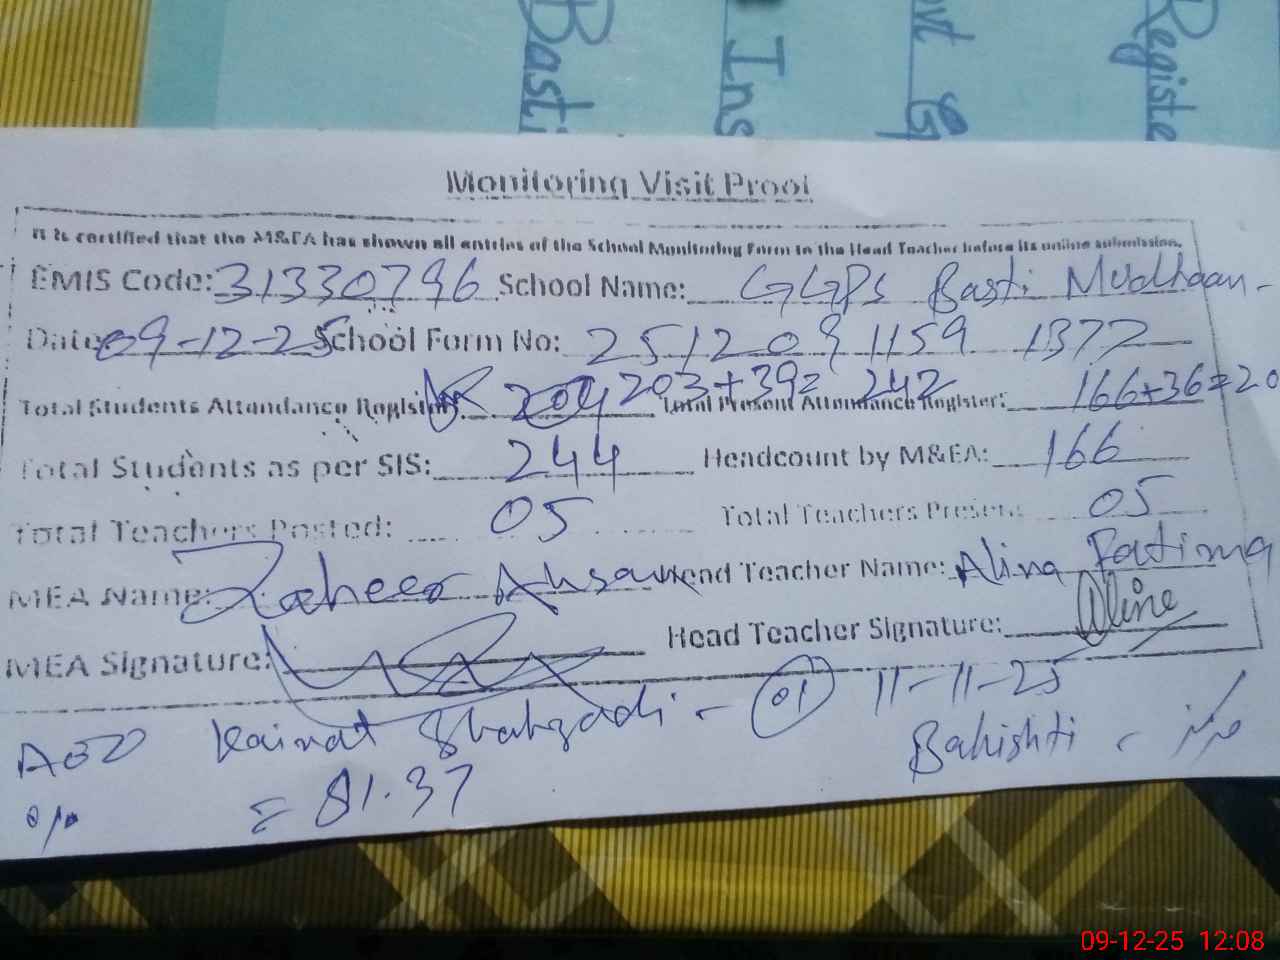 Basti
Ins
vt G
Registe
Monitoring Visit Proof
It is certified that the M&EA has shown all entries of the School Monitoring Form to the Head Teacher before its online submission.
EMIS Code: 31330796 School Name: GGPS Basti Mudhaan
Date: 09-12-25 School Form No: 25120911591377
Total Students Attendance Register: 204 203+39= 242 Total Present Attendance Register: 166+36=20
Total Students as per SIS: 244 Headcount by M&EA: 166
Total Teachers Posted: 05 Total Teachers Present: 05
MEA Name: Zaheer Ahsan Head Teacher Name: Alina Fatima
MEA Signature: Head Teacher Signature: Aline
AEO Kainat Shahzadi - 01 11-11-25
% = 81.37 Bahishti -
09-12-25 12:08